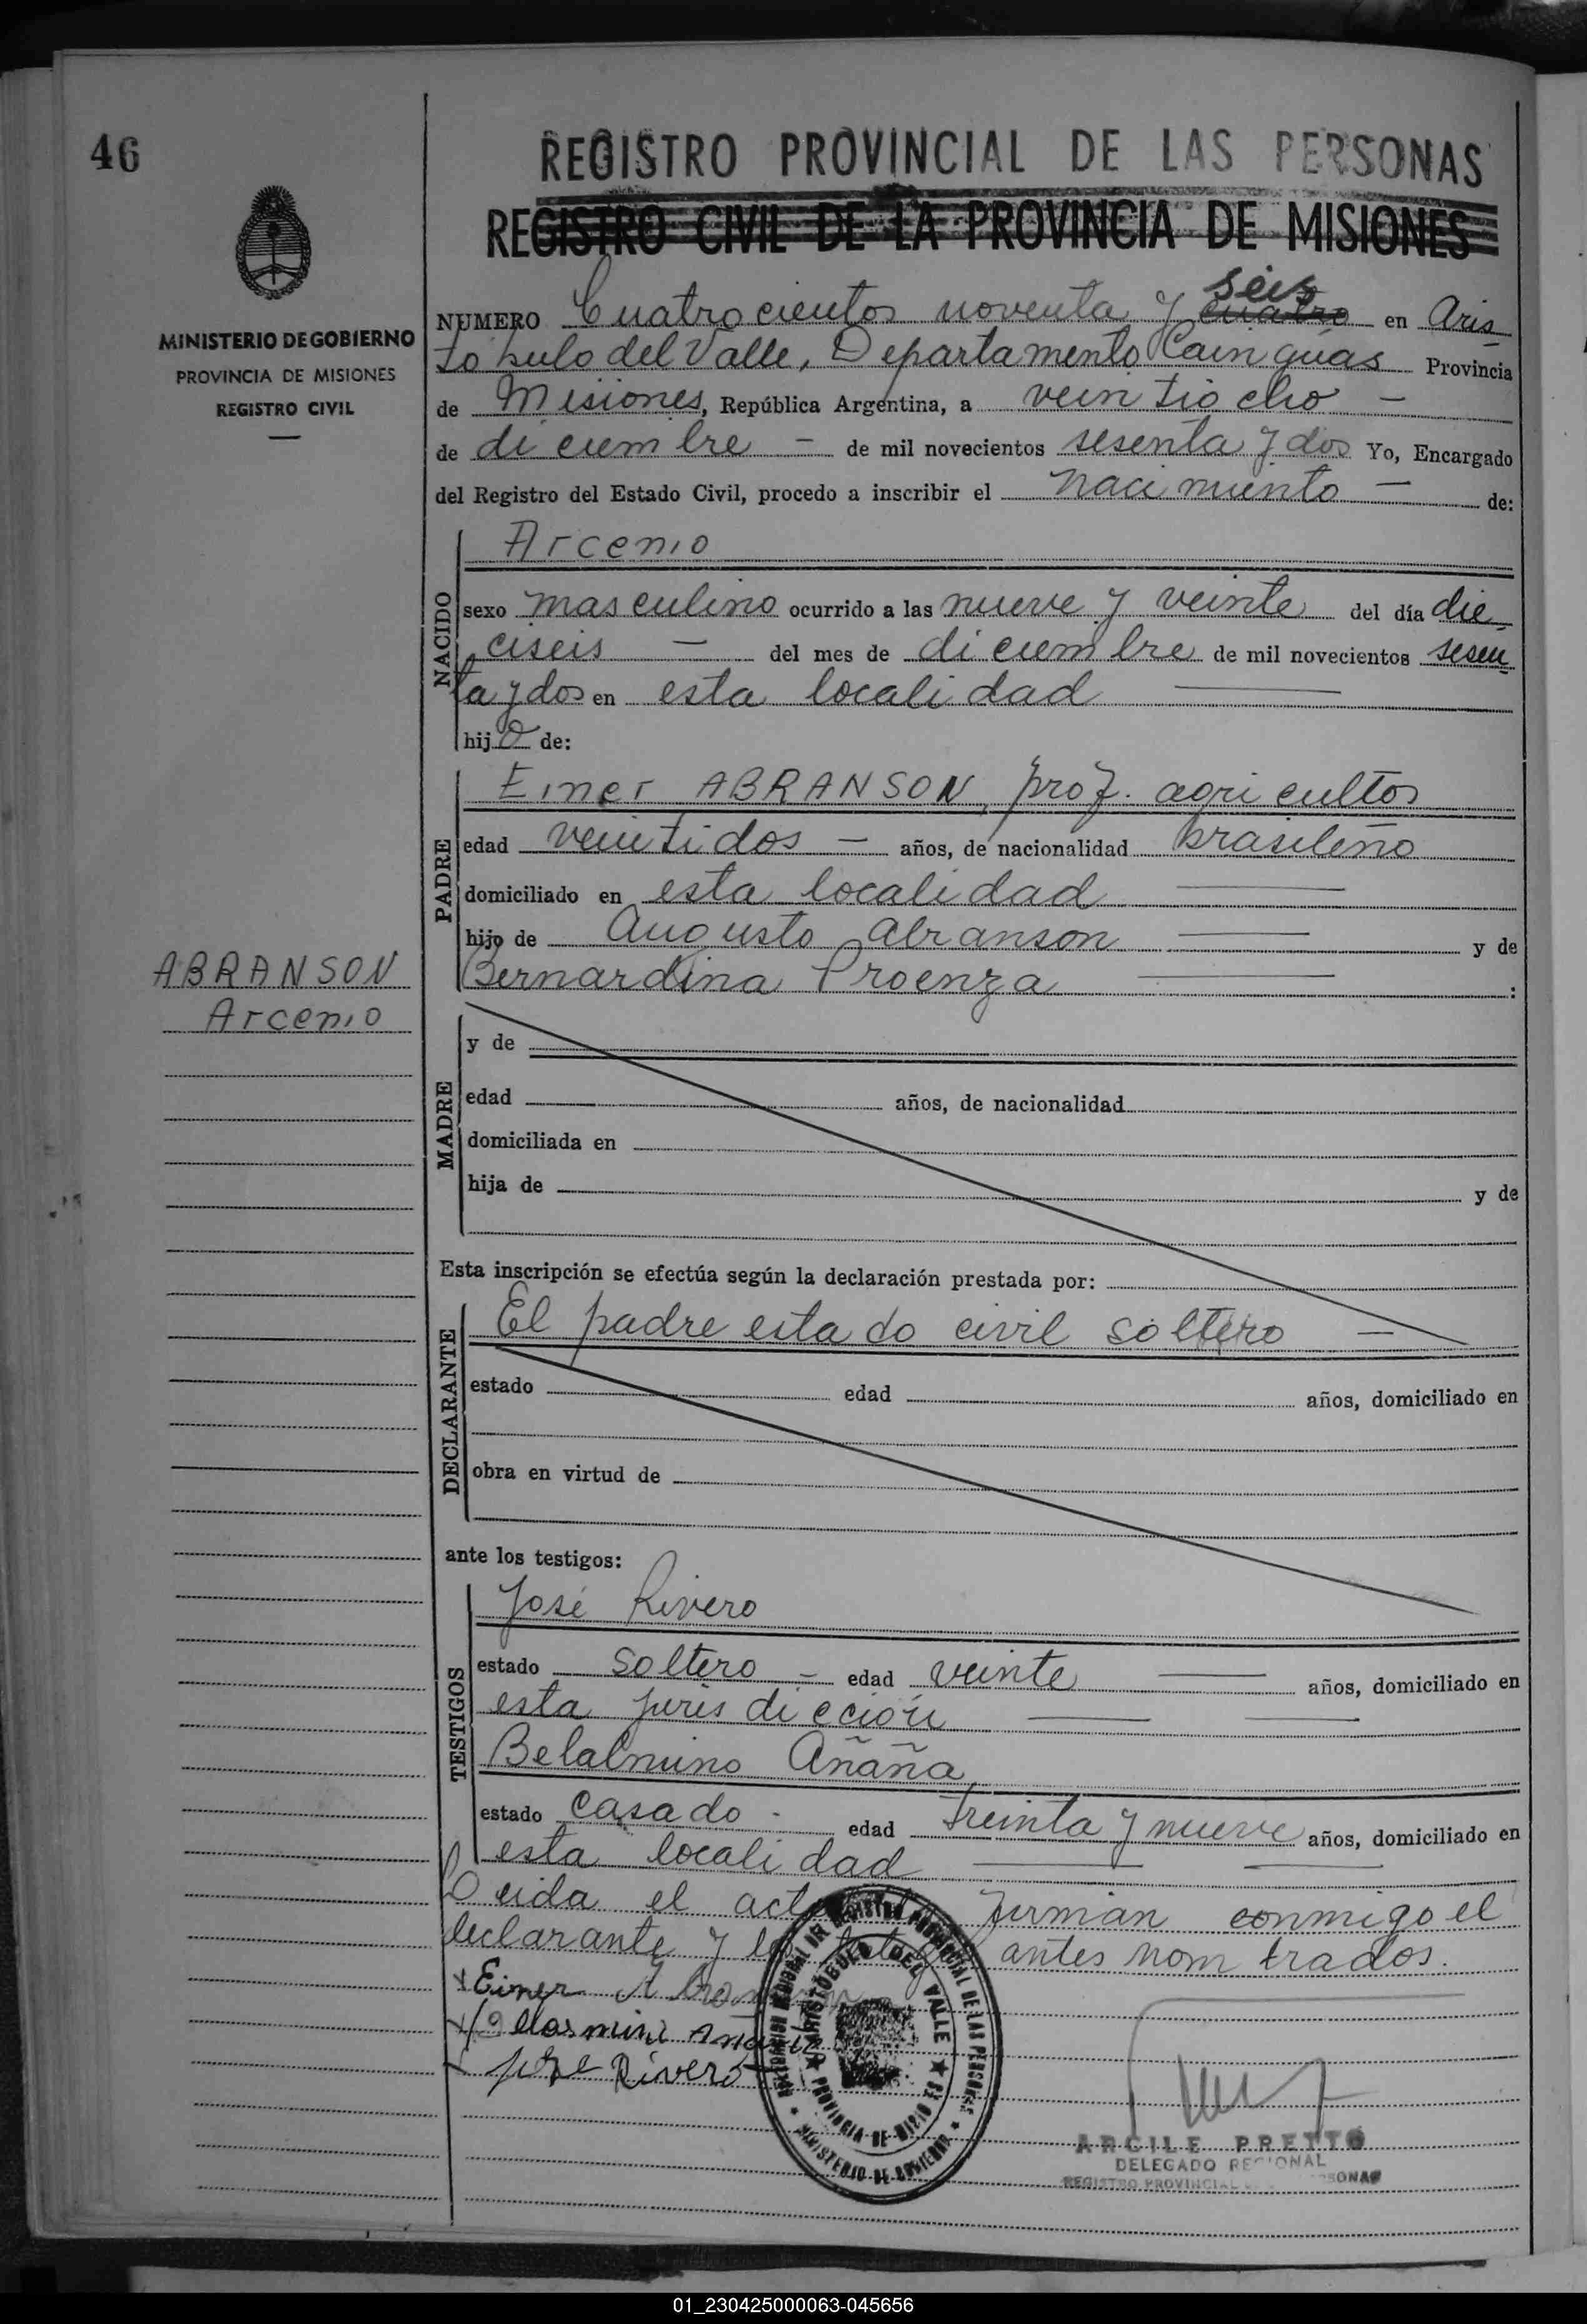 46
REGISTRO PROVINCIAL DE LAS PERSONAS
REGISTRO CIVIL DE LA PROVINCIA DE MISIONES
MINISTERIO DE GOBIERNO
PROVINCIA DE MISIONES
REGISTRO CIVIL
seis
NUMERO Cuatrocientos noventa y cuatro en Aris
tobulo del Valle, Departamento Cainguas Provincia
de Misiones, República Argentina, a veintiocho -
de diciembre - de mil novecientos sesenta y dos Yo, Encargado
del Registro del Estado Civil, procedo a inscribir el nacimiento - de:
NACIDO
Arcenio
sexo masculino ocurrido a las nueve y veinte del día die
ciseis - del mes de diciembre de mil novecientos sesen
ta y dos en esta localidad
hijo de:
PADRE
Einer ABRANSON, prof. agricultor
edad veintidos - años, de nacionalidad brasileño
domiciliado en esta localidad
hijo de Augusto Abranson y de
Bernardina Proenza :
ABRANSON
Arcenio
MADRE
y de
edad años, de nacionalidad
domiciliada en
hija de y de
Esta inscripción se efectúa según la declaración prestada por:
DECLARANTE
El padre estado civil soltero -
estado edad años, domiciliado en
obra en virtud de
ante los testigos:
TESTIGOS
José Rivero
estado soltero - edad veinte años, domiciliado en
esta jurisdicción
Belalmino Añaña
estado casado - edad treinta y nueve años, domiciliado en
esta localidad
Leida el acta firman conmigo el
declarante y los antes nombrados.
Einer
Jose Rivero
ARISTOBULO DEL VALLE
PROVINCIA DE MISIONES
MINISTERIO DE GOBIERNO
ARGILE PRETTO
DELEGADO REGIONAL
REGISTRO PROVINCIAL
01_230425000063-045656